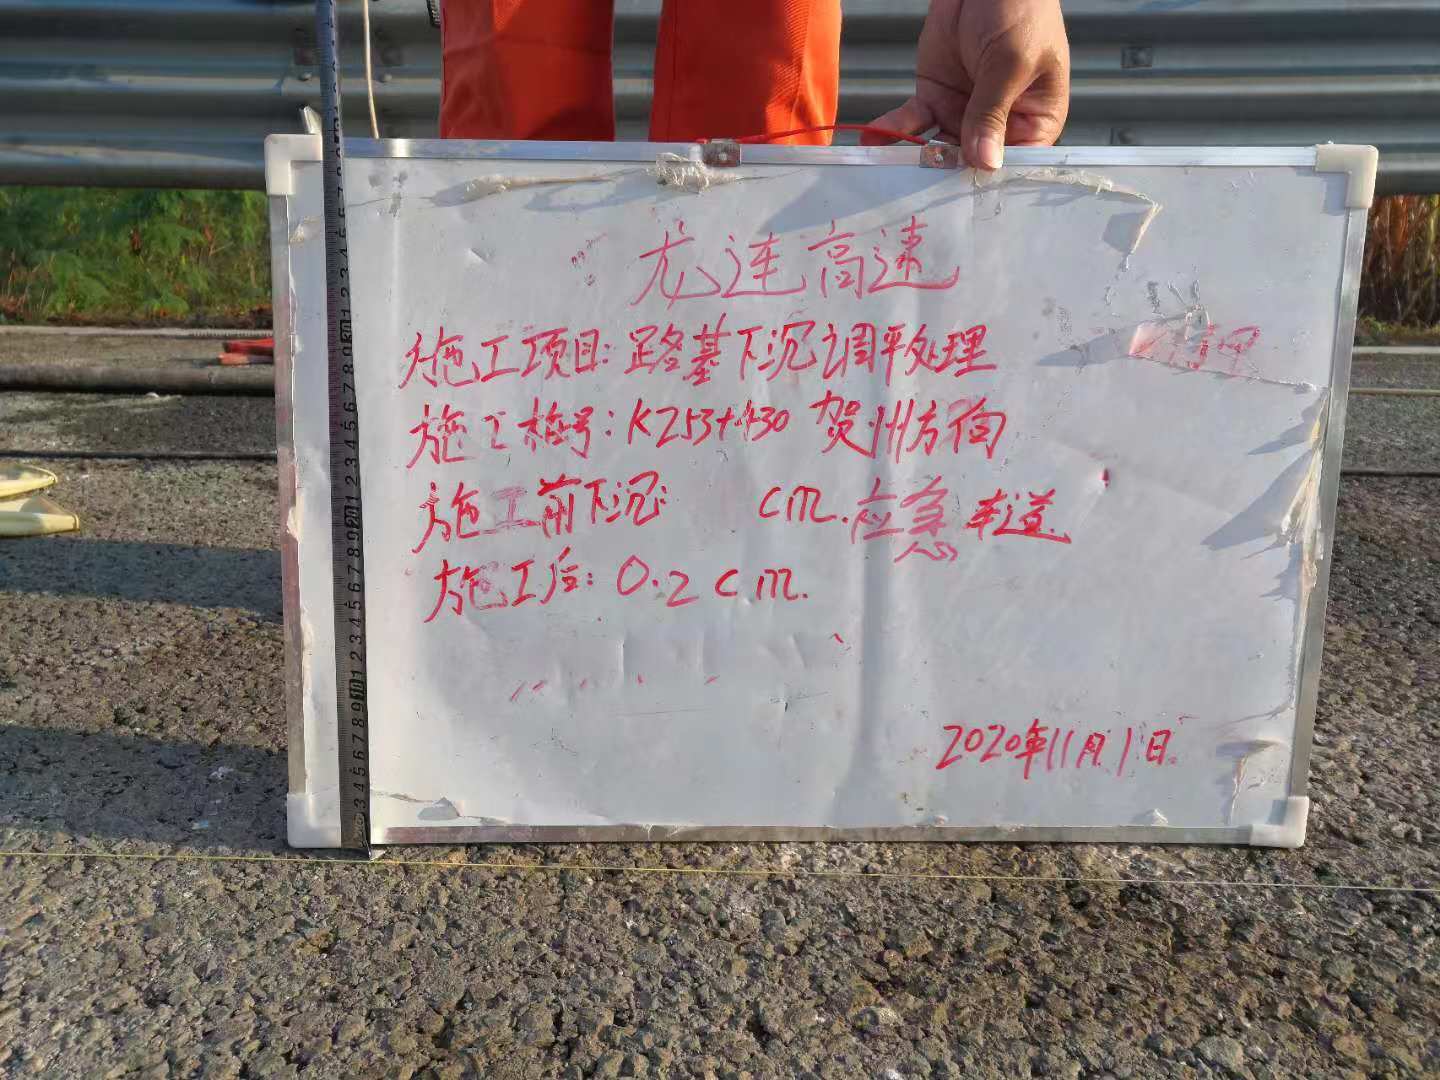 龙连高速
施工项目：路基下沉调平处理
施工桩号：K253+430 贺州方向
施工前下沉： cm.应急车道
施工后：0.2cm.
2020年11月1日